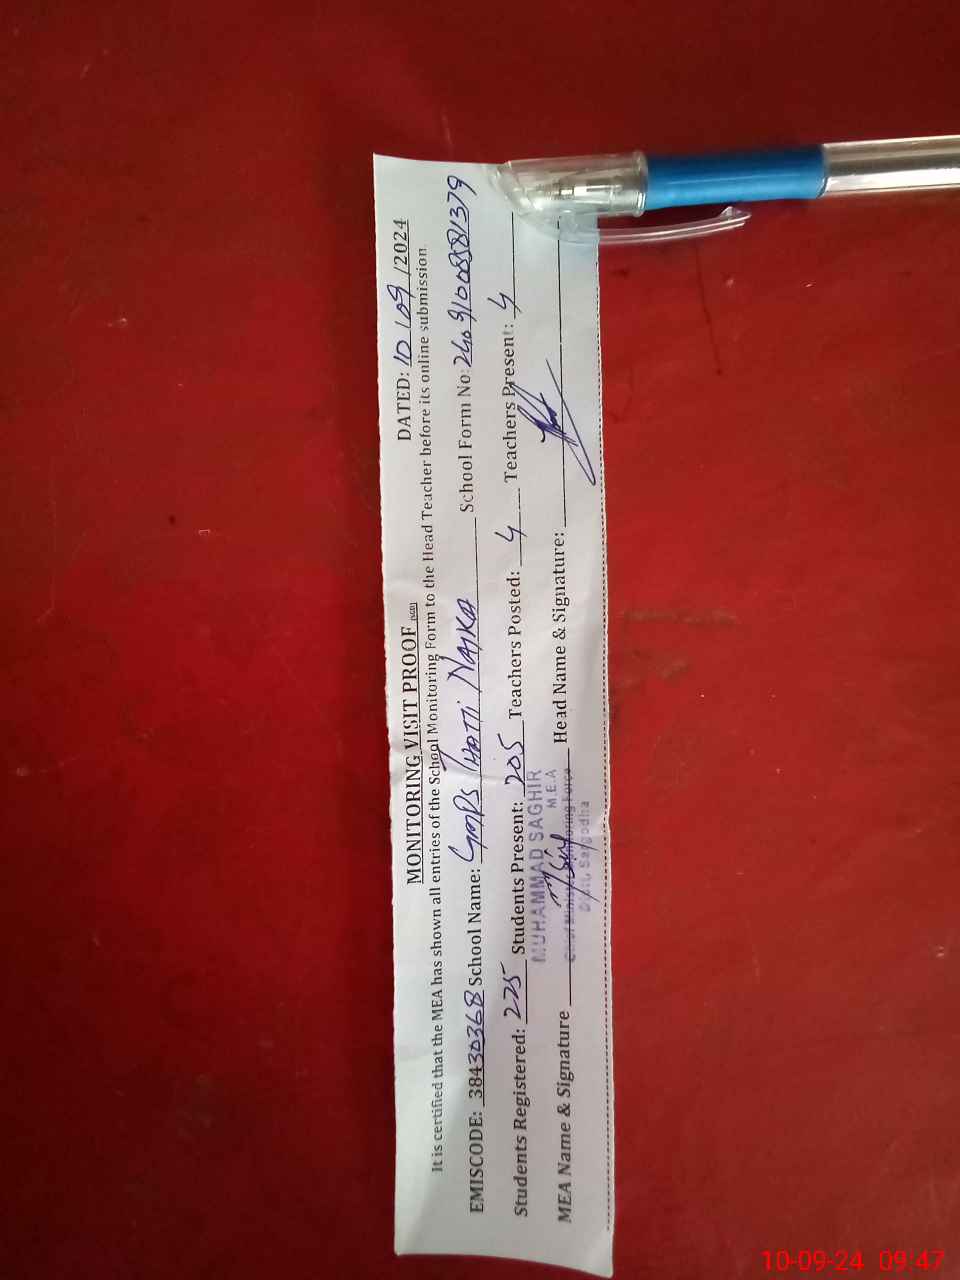 MONITORING VISIT PROOF (SGD) DATED: 10/09/2024
It is certified that the MEA has shown all entries of the School Monitoring Form to the Head Teacher before its online submission.
EMISCODE: 38430368 School Name: GMPS Thatti Najka School Form No: 24091008581379
Students Registered: 225 Students Present: 205 Teachers Posted: 4 Teachers Present: 4
MUHAMMAD SAGHIR
M.E.A
MEA Name & Signature Head Name & Signature:
Chief Minister Monitoring Force
Distt. Sargodha
10-09-24 09:47